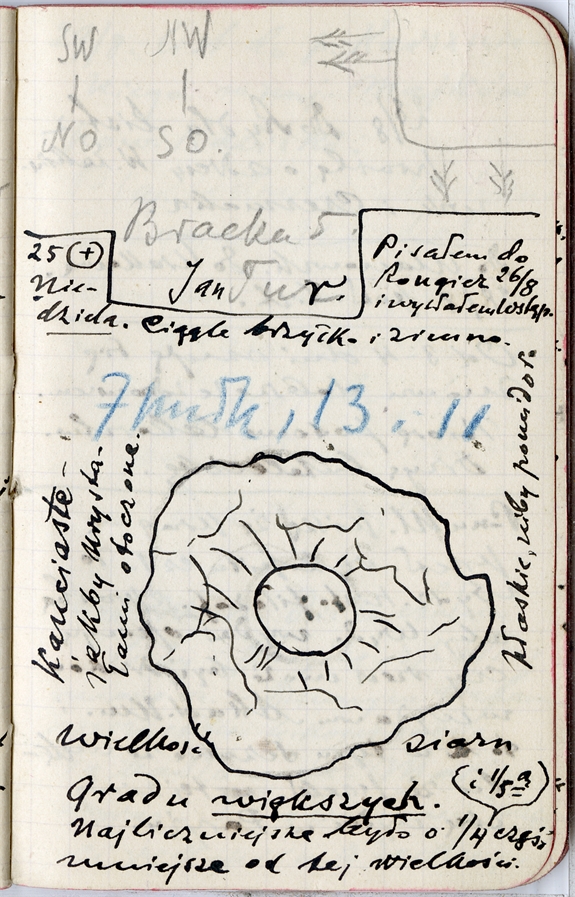 SW NW
NO SO.
Bracka 5.
25 (+)
Nie-
dziela. Ciągle brzydko i zimno.
Jan Tur.
Pisałem do
Rougier 26/8
i wysłałem
13 i 11
Kanciaste –
jakby kryszta-
łami otoczone.
płaskie, niby pomidor.
wielkość ziarn
gradu większych.
(i 1/5 a)
Najliczniejsze było o 1/4 częś.
mniejsze od tej wielkości.